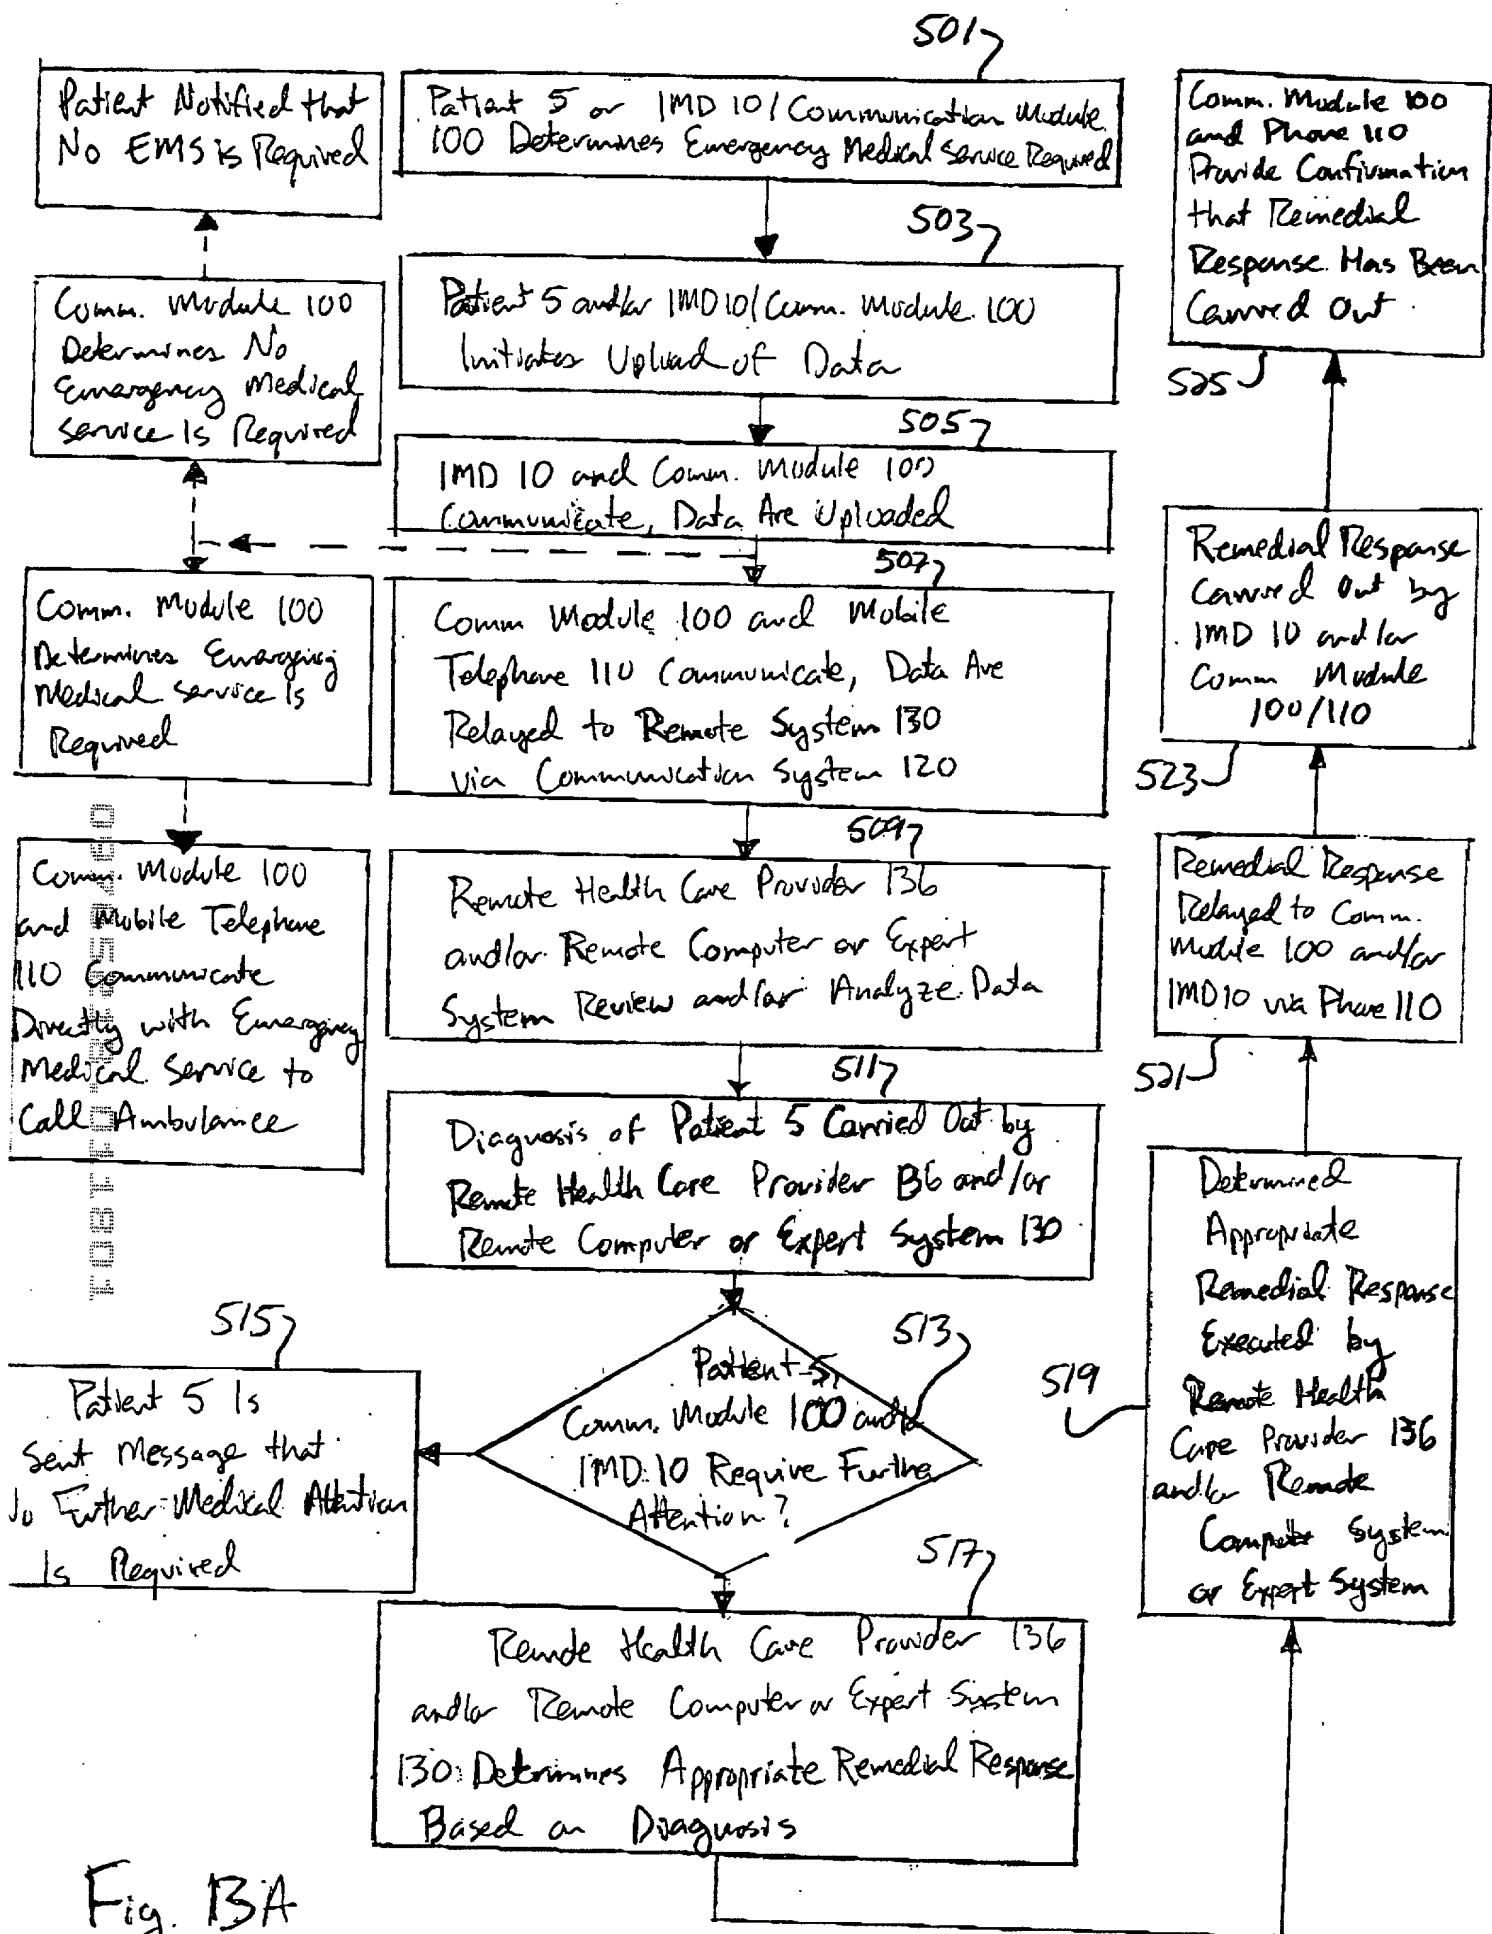 501
Patient Notified that
No EMS is Required
Patient 5 or IMD 10/Communication Module
100 Determines Emergency Medical Service Required
Comm. Module 100
and Phone 110
Provide Confirmation
that Remedial
Response Has Been
Carried Out
525
503
Comm. Module 100
Determines No
Emergency Medical
Service Is Required
Patient 5 and/or IMD 10/Comm. Module 100
Initiates Upload of Data
505
IMD 10 and Comm. Module 100
Communicate, Data Are Uploaded
507
Comm. Module 100
Determines Emergency
Medical Service Is
Required
Comm Module 100 and Mobile
Telephone 110 Communicate, Data Are
Relayed to Remote System 130
via Communication System 120
Remedial Response
Carried Out by
IMD 10 and/or
Comm Module
100/110
523
509
Comm. Module 100
and Mobile Telephone
110 Communicate
Directly with Emergency
Medical Service to
Call Ambulance
Remote Health Care Provider 136
and/or Remote Computer or Expert
System Review and/or Analyze Data
Remedial Response
Relayed to Comm.
Module 100 and/or
IMD 10 via Phone 110
521
511
Diagnosis of Patient 5 Carried Out by
Remote Health Care Provider 136 and/or
Remote Computer or Expert System 130
515
Patient 5 Is
Sent Message that
Further Medical Attention
Is Required
513
Patient 5,
Comm. Module 100 and/o
IMD 10 Require Further
Attention?
519
Determined
Appropriate
Remedial Response
Executed by
Remote Health
Care Provider 136
and/or Remote
Compute System
or Expert System
517
Remote Health Care Provider 136
and/or Remote Computer or Expert System
130 Determines Appropriate Remedial Response
Based on Diagnosis
Fig. 13A